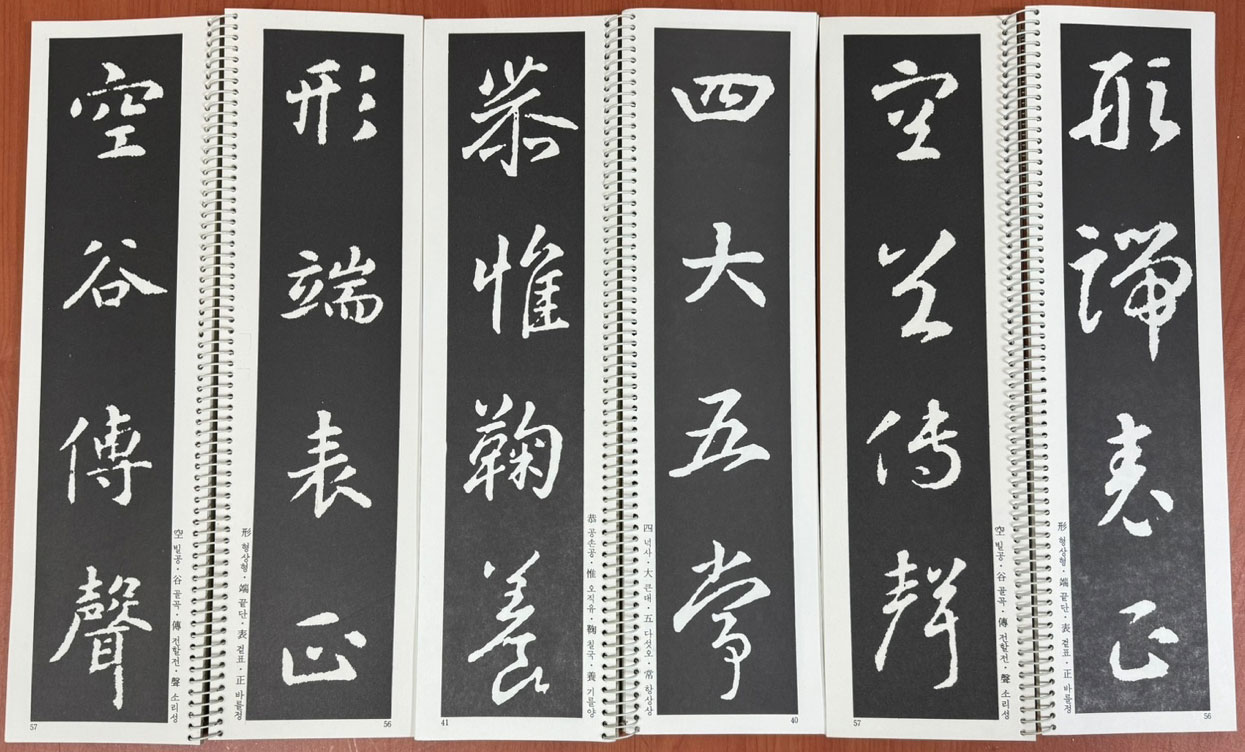 形端表正
形 형상형·端 끝단·表 겉표·正 바를정
56
空谷傳聲
空 빌공·谷 골곡·傳 전할전·聲 소리성
57
四大五常
四 넉사·大 큰대·五 다섯오·常 항상상
40
恭惟鞠養
恭 공손공·惟 오직유·鞠 칠국·養 기를양
41
形端表正
形 형상형·端 끝단·表 겉표·正 바를정
56
空谷傳聲
空 빌공·谷 골곡·傳 전할전·聲 소리성
57